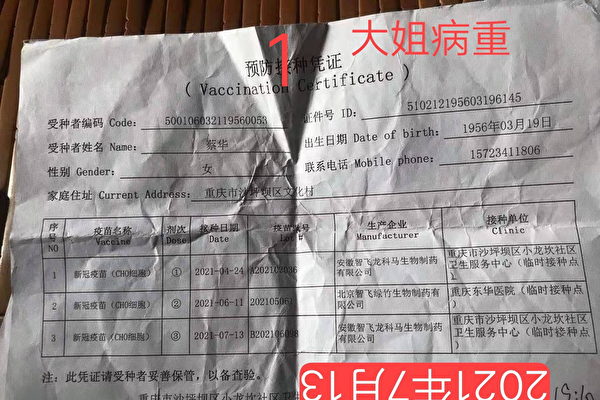 1 大姐病重
预防接种凭证
( Vaccination Certificate )
受种者编码 Code: 500106032119560053 证件号 ID: 510212195603196145
受种者姓名 Name: 蔡华 出生日期 Date of birth: 1956年03月19日
性别 Gender: 女 联系电话 Mobile phone: 15723411806
家庭住址 Current Address: 重庆市沙坪坝区文化村
序号 NO 疫苗名称 Vaccine 剂次 Dose 接种日期 Date 疫苗批号 Lot # 生产企业 Manufacturer 接种单位 Clinic
1 新冠疫苗（CHO细胞） ① 2021-04-24 A202102036 安徽智飞龙科马生物制药有限公司 重庆市沙坪坝区小龙坎社区卫生服务中心（临时接种点）
2 新冠疫苗（CHO细胞） ② 2021-06-11 北京智飞绿竹生物制药有限公司 重庆东华医院（临时接种点）
3 新冠疫苗（CHO细胞） ③ 2021-07-13 B202106098 安徽智飞龙科马生物制药有限公司 重庆市沙坪坝区小龙坎社区卫生服务中心（临时接种点）
注: 此凭证请受种者妥善保管，以备查验。
2021年7月13
重庆市沙坪坝区小龙坎社区卫生